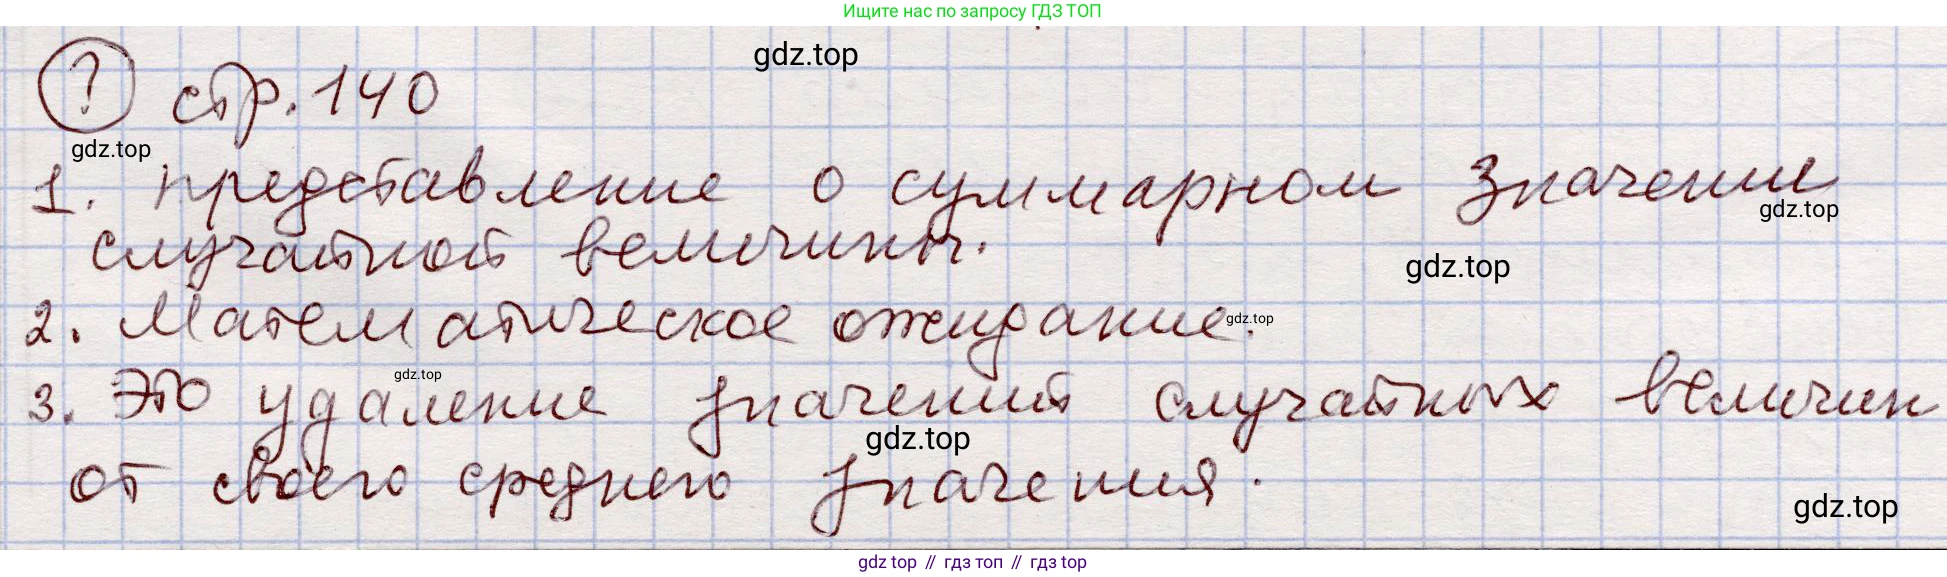 Ищите нас по запросу ГДЗ ТОП
gdz.top
? стр. 140
gdz.top
1. представление о суммарном значении
gdz.top
случайной величины.
gdz.top
2. Математическое ожидание.
gdz.top
gdz.top
3. Это удаление значений случайных величин
gdz.top
от своего среднего значения.
gdz.top
gdz top // гдз топ // гдз top